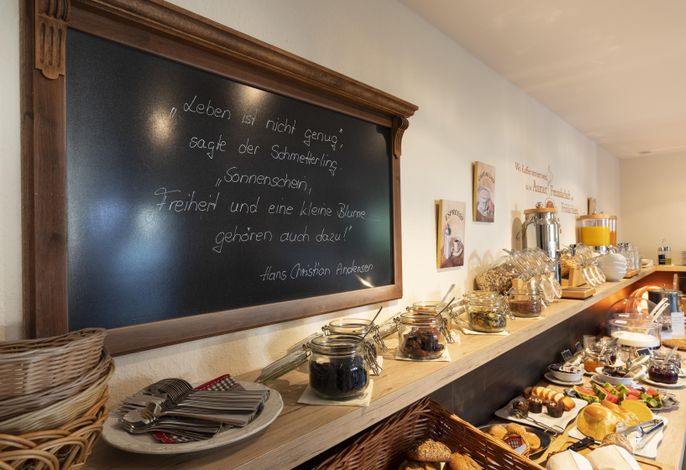 „Leben ist nicht genug",
sagte der Schmetterling.
„Sonnenschein,
Freiheit und eine kleine Blume
gehören auch dazu!"
Hans Christian Andersen